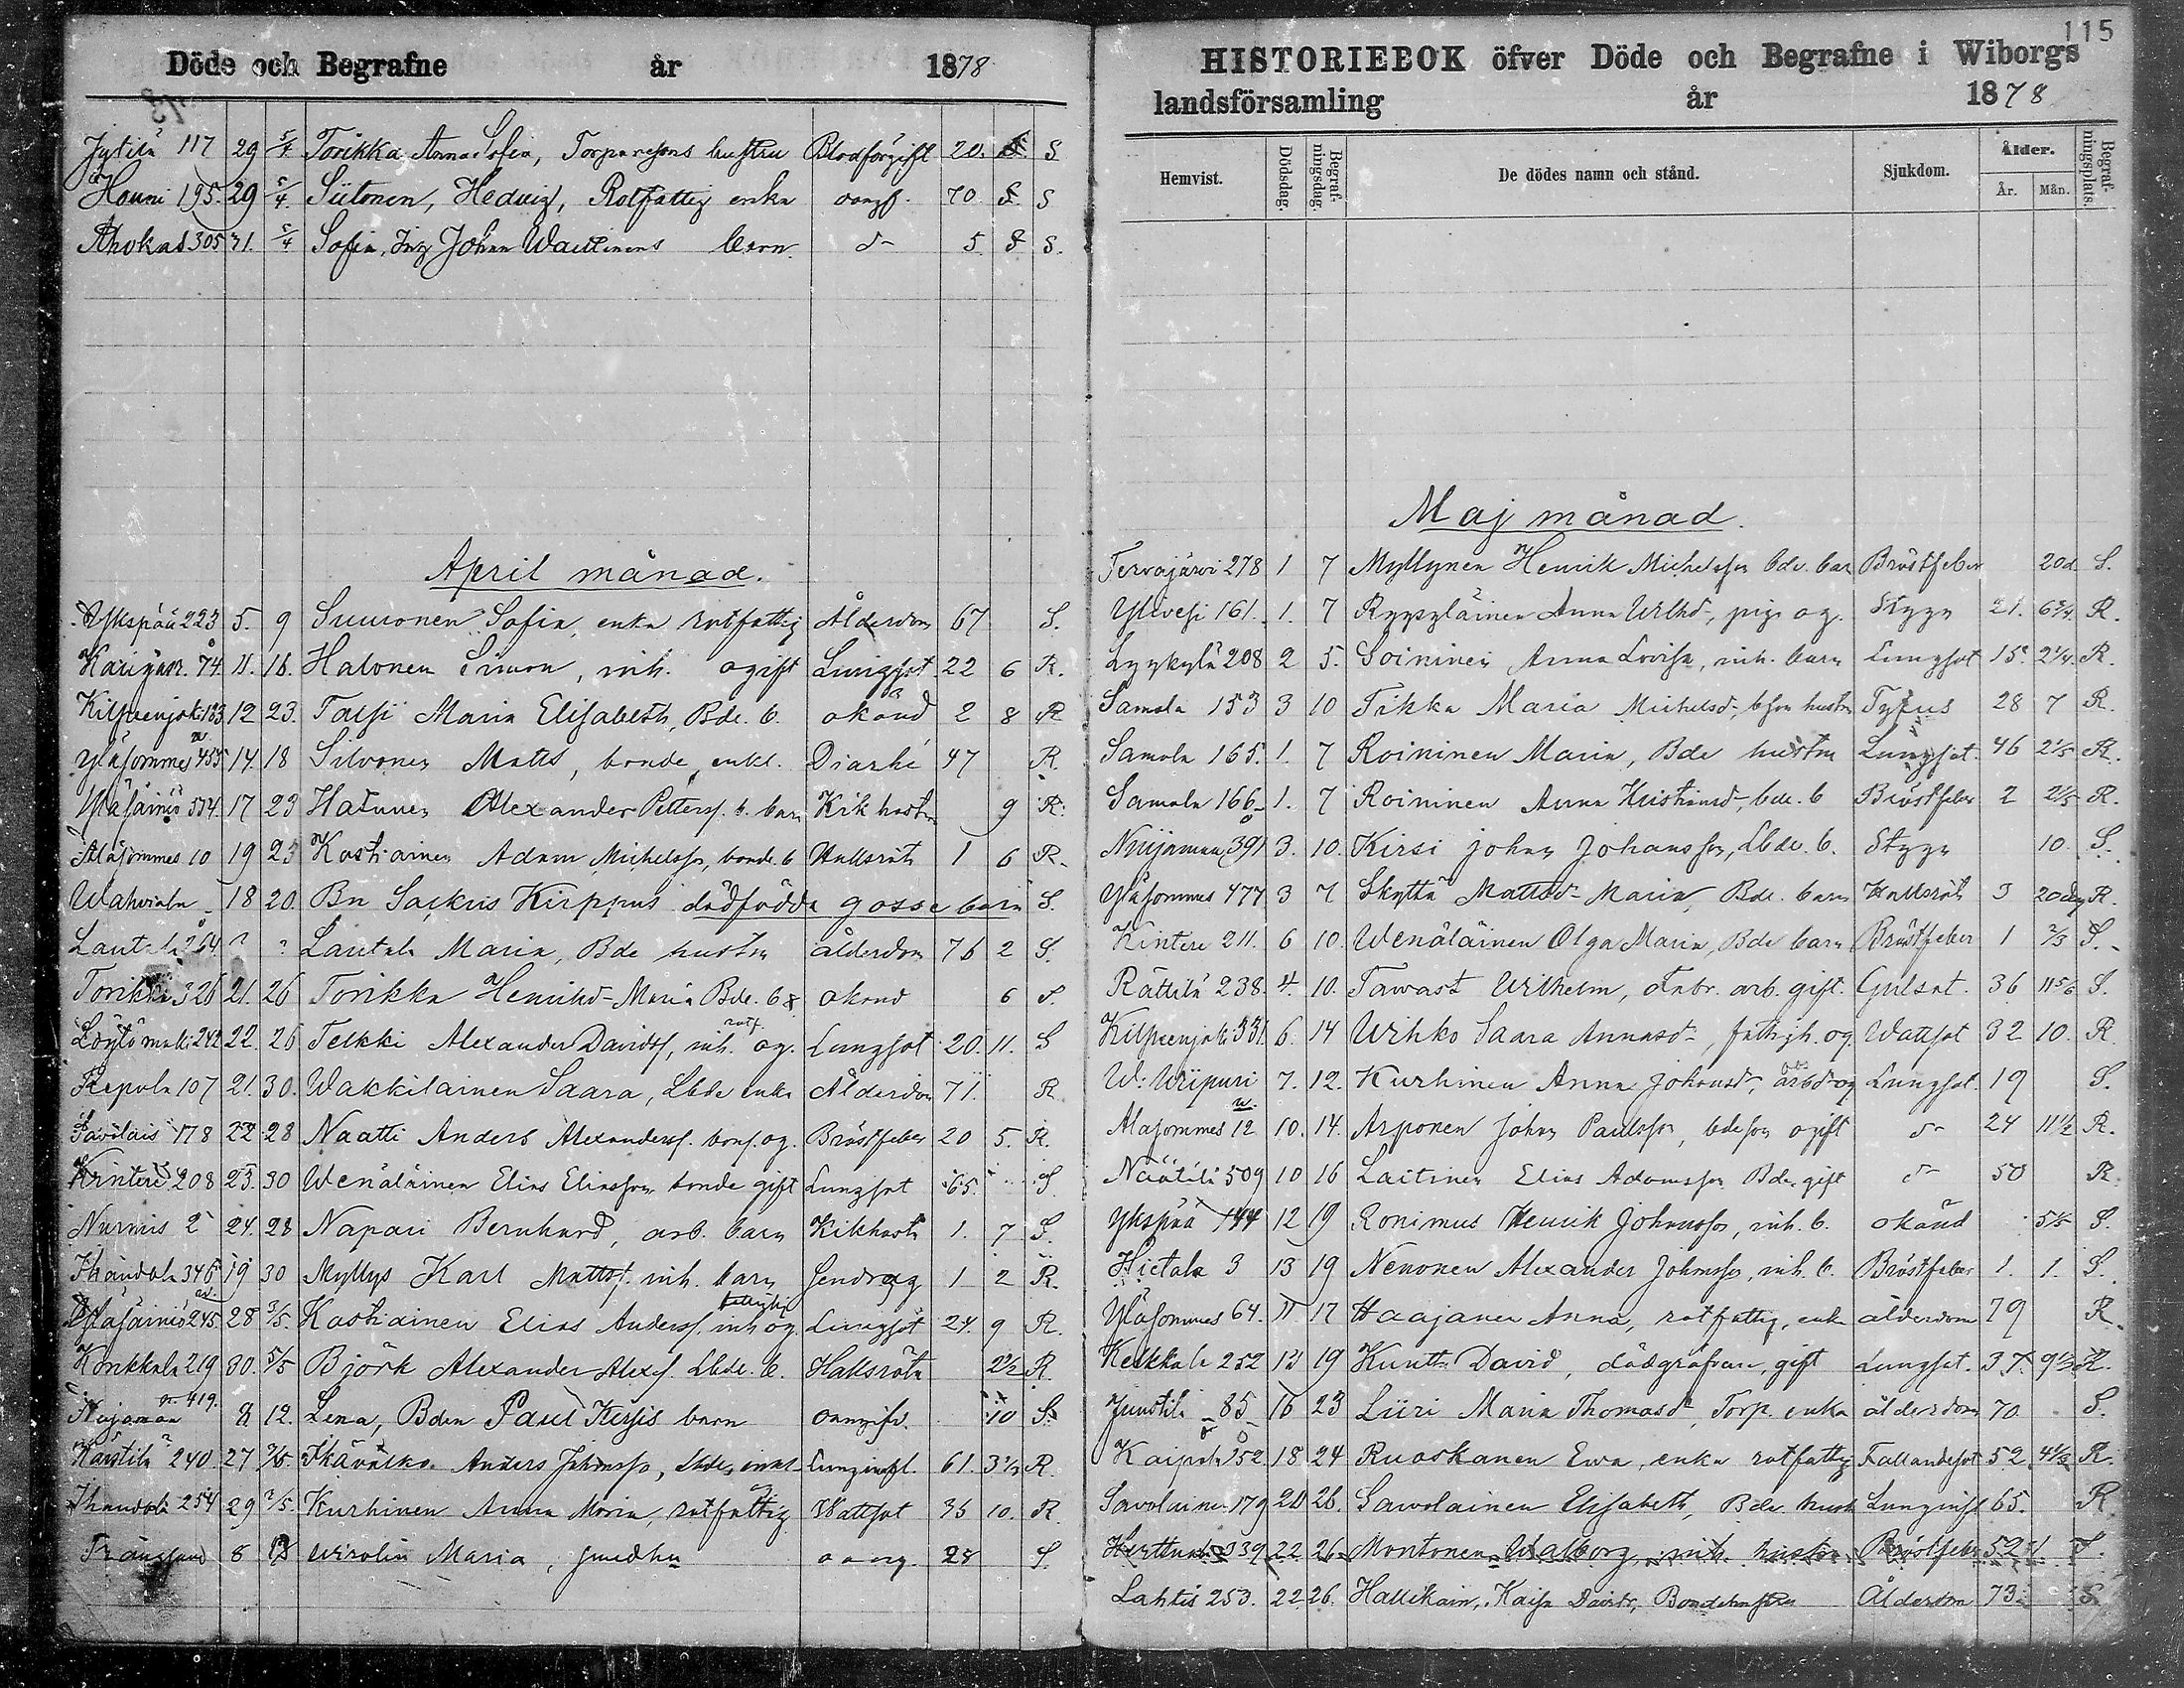 Döde och Begrafne år 1878
Jytilä 117 29 5/4 Torikka Anna Sofia, Torparesons hustru Blodförgift 20. S
Houni 195. 29 5/4. Siitonen, Hedvig, Rotfattig enka oangf. 70 S
Ahokas 305 31. 5/4 Sofia, Inh Johan Wautinens barn. d:o 5 S.
April månad.
Ykspää 223 5. 9 Suuronen Sofia, enka rotfattig Ålderdom 67 S.
74. 11. 16. Halonen Simon, inh. ogift Lungsot 22 6 R.
Kilpeenjoki 183 12 23. Taisi Maria Elisabeth, Bde. b. okänd 2 8 R
Yläsommee 455 14. 18 Silvonen Matts, bonde, enkl. Diarhé 47 R.
Yläsäiniö 514. 17 23 Hatunen Alexander Petterss. b. barn Kikhosta 9 R.
Alasommee 10 19 23 Kostiainen Adam Michelsson, bonde. b Halsröta 1 6 R.
Wahviala 18 20. Bn Sackris Kirppus dödfödda gossebarn S.
Lautala 264. ? ? Lautala Maria, Bde hustru ålderdom 76 2 S.
Torikka 326 21. 26 Torikka Henriksd- Maria Bde. b okänd 6 S.
Löytömäki 242 22. 26 Telkki Alexander Davids, inh. rotf. og. Lungsot 20. 11. S
Repola 107 21. 30. Wakkilainen Saara, Lbde enka Ålderdom 71. R
Savolais 178 22 28 Naatti Anders Alexanders. bons. og. Bröstfeber 20 5. R.
Kintere 208 23. 30 Wenäläinen Elias Eliasson bonde gift Lungsot 65. S
Nurmis 2 24. 28 Napari Bernhard, arb. barn Kikhosta 1. 7 S.
Ihandala 346 19 30 Myllys Karl Matts. inh. barn Sendrag 1 2 R.
Yläsäiniö 245 28 3/5. Kostiainen Elias Anderss. inh og. Lungsot 24. 9 R.
Konkkala 219 30. 5/5 Björk Alexander Alex. Lbde. b. Halsröta 2 1/2 R.
Nuijamaa 419. 8 12. Lena, Bden Paul Kirsis barn oangifv. 10 S.
Karstila 240. 27 Skävälkö Anders Johansson, Lbde, enkl. Lunginfl. 61. 3 1/2 R.
Ihandala 254 29 2/5. Kurhinen Anna Maria, rotfattig Wattsot 36 10. R.
Trångsund 8 Wirolin Maria, smedhu oang. 28 S.
115
HISTORIEBOK öfver Döde och Begrafne i Wiborgs
landsförsamling år 1878
Hemvist. Dödsdag. Begrafningsdag. De dödes namn och stånd. Sjukdom. Ålder. År. Mån. Begrafningsplats.
Maj månad.
Tervajärvi 278 1 7 Myllynen Henrik Michelsson bde. barn Bröstfeber 20 d. S.
Ylivesi 161. 1. 7 Ryypyläinen Anna Wilhd-, piga og. Stygn 21. 6 3/4 R.
Lyykylä 208 2 5. Soininen Anna Lovisa, inh. barn Lungsot 15. 2 1/4. R.
Samola 153 3 10 Tikka Maria Michelsd-, bson hustru Tyfus 28 7 R.
Samola 165. 1. 7 Roininen Maria, Bde hustru Lungsot. 46 2 1/5 R.
Samola 166 1. 7 Roininen Anna Kristiansd-, bde. b Bröstfeber 2 2 1/5 R.
Nuijamaa 391 3. 10. Kirsi Johan Johansson, Lbde. b. Stygn 10. S.
Yläsommee 477 3 7 Skyttä Mattsd- Maria, Bde. barn Halsröta 3 20 dag R.
Kintere 211. 6 10. Wenäläinen Olga Maria, Bde barn Bröstfeber 1 2/3 S.
Rättilä 238. 4. 10. Tawast Wilhelm, Fabr. arb. gift. Gulsot. 36 11 5/6 S.
Kilpeenjoki 331. 6. 14 Wihko Saara Annasd-, fattigh. og. Wattsot 32 10. R.
W: Wiipuri 7. 12. Kurhinen Anna Johansd-, arbd og Lungsot. 19 S.
Alasommee 12 10. 14. Arponen Johan Paulsson, bdeson ogift d:o 24 11 1/2 R.
Näätälä 509 10 16 Laitinen Elias Adamsson Bde, gift d:o 50 R.
Ykspää 144 12 19 Ronimus Henrik Johansson, inh. b. okänd 5 1/5 S.
Hietala 3 13 19 Nenonen Alexander Johansson, inh. b. Bröstfeber 1. 1. S.
Yläsommee 64. 11 17 Haajanen Anna, rotfattig, enka ålderdom 79 R.
Kelkkala 252 13 19 Kuntti David, dödgräfvare, gift Lungsot. 37. 9 1/3 R.
Juustila 85 16 23 Liiri Maria Thomasd-, Torp. enka ålderdom 70. S.
Kaipola 152 18 24 Ruoskanen Ewa, enka rotfattig Fallandesot 52 4 1/2 R.
Savolainen 179 20 26. Savolainen Elisabeth, Bde hustru Lunginfl 65. R
Herttuala 339 22 26 Montonen Walborg, inh. hustru Bröstfeber 52 1 S.
Lahtis 253. 22 26. Hallikain, Kaisa Davidsd, Bondehustru Ålderdom 73. S